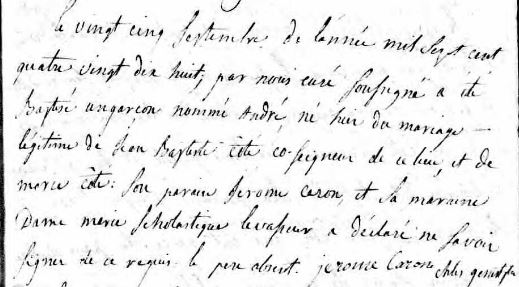 Le vingt cinq Septembre de l'année mil Sept cent
quatre vingt dix huit, par nous curé soussigné a été
Baptisé un garçon nommé André, né hier du mariage
légitime de Jean Baptiste Côté co-seigneur de ce lieu, et de
marie Côté: Son parain Jerome Caron, et Sa maraine
Dame marie Scholastique levasseur a déclaré ne savoir
signer de ce requis. le pere absent. jerome Caron